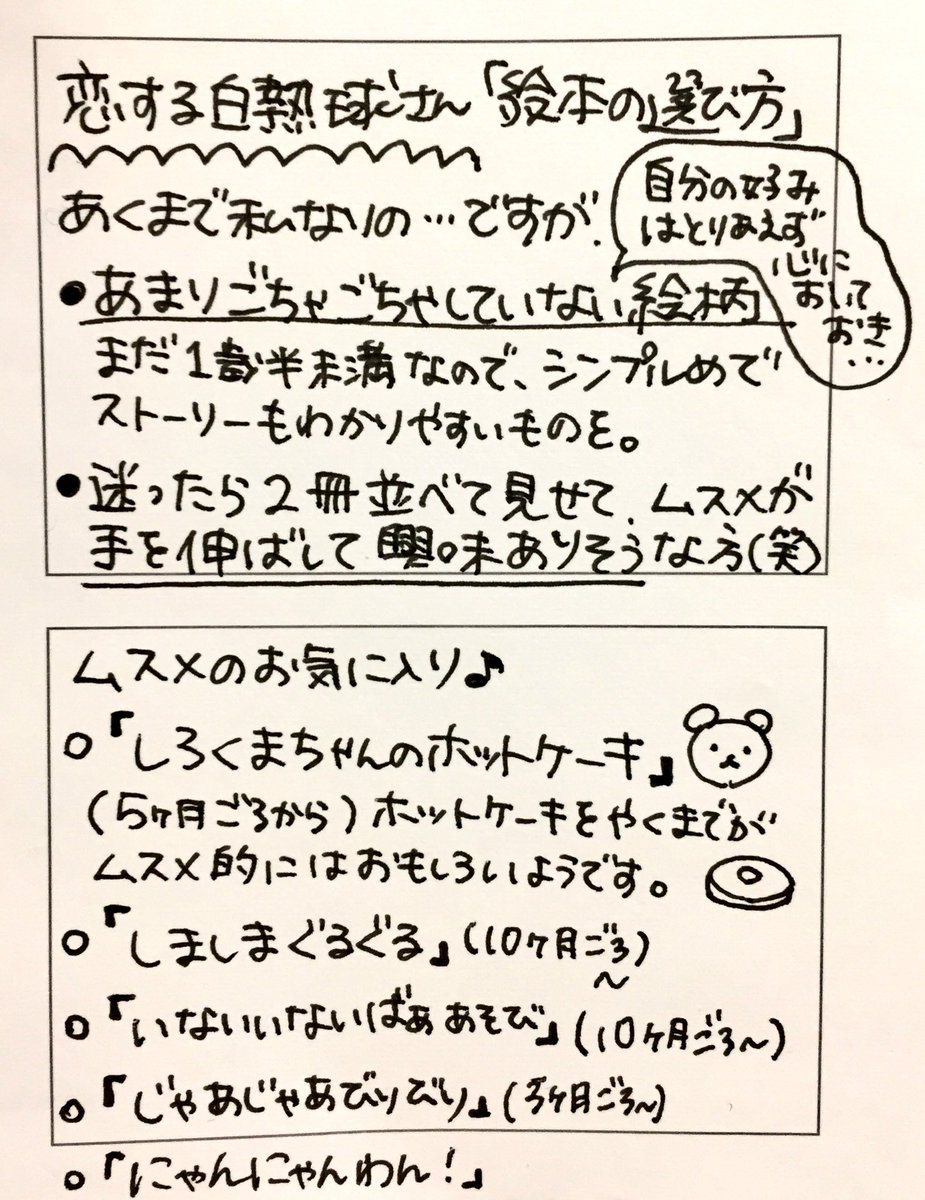 恋する白熱球さん「絵本の選び方」
あくまで私なりの…ですが、
自分の好み
はとりあえず
心に
おいて
おき…
●あまりごちゃごちゃしていない絵柄
まだ1歳半未満なので、シンプルめで
ストーリーもわかりやすいものを。
●迷ったら2冊並べて見せて、ムスメが
手を伸ばして興味ありそうな方(笑)
ムスメのお気に入り♪
○『しろくまちゃんのホットケーキ』
(5ヶ月ごろから)ホットケーキをやくまでが
ムスメ的にはおもしろいようです。
○『しましまぐるぐる』(10ヶ月ごろ〜)
○『いないいないばああそび』(10ヶ月ごろ〜)
○『じゃあじゃあびりびり』(ヶ月ごろ〜)
○『にゃんにゃんわん!』